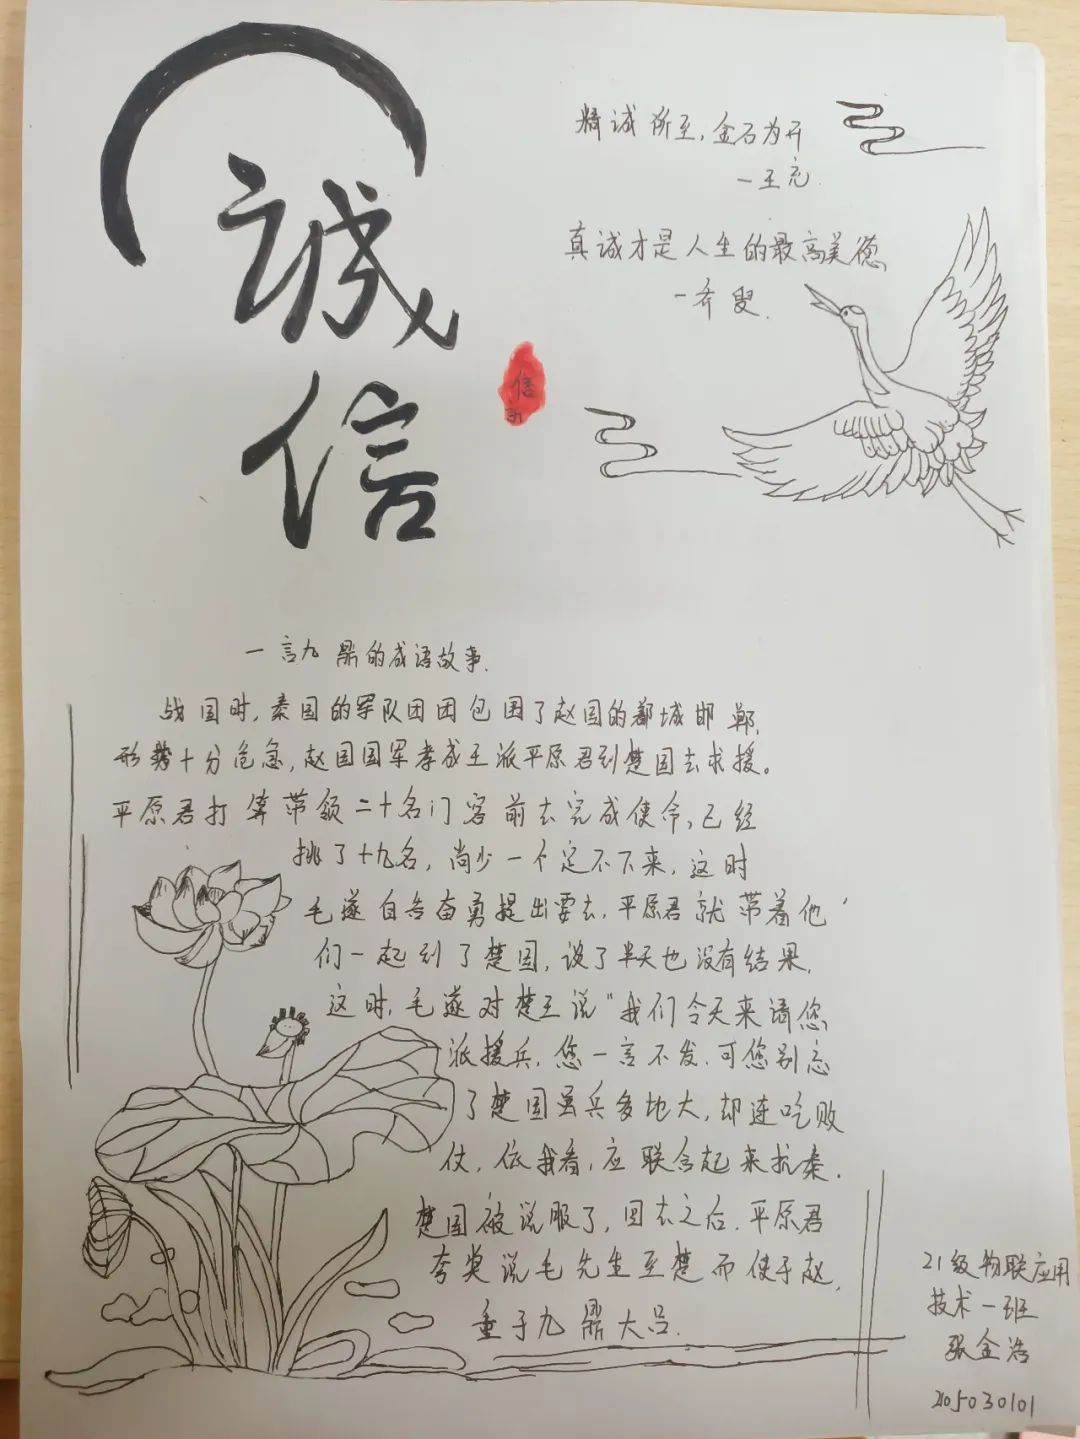 诚
信
信
精诚所至,金石为开
一王充.
真诚才是人生的最高美德
一乔叟.
一言九鼎的成语故事.
战国时,秦国的军队团团包围了赵国的都城邯郸,
形势十分危急,赵国国军孝成王派平原君到楚国去求援。
平原君打算带领二十名门客前去完成使命,已经
挑了十九名,尚少一个定不下来,这时
毛遂自告奋勇提出要去,平原君就带着他
们一起到了楚国,谈了半天也没有结果,
这时,毛遂对楚王说"我们今天来请您
派援兵,您一言不发.可您别忘
了楚国虽兵多地大,却连吃败
仗,依我看,应联合起来抗秦.
楚国被说服了,回去之后.平原君
夸奖说毛先生至楚而使于赵,
重于九鼎大吕.
21级物联应用
技术一班
张金浩
205030101